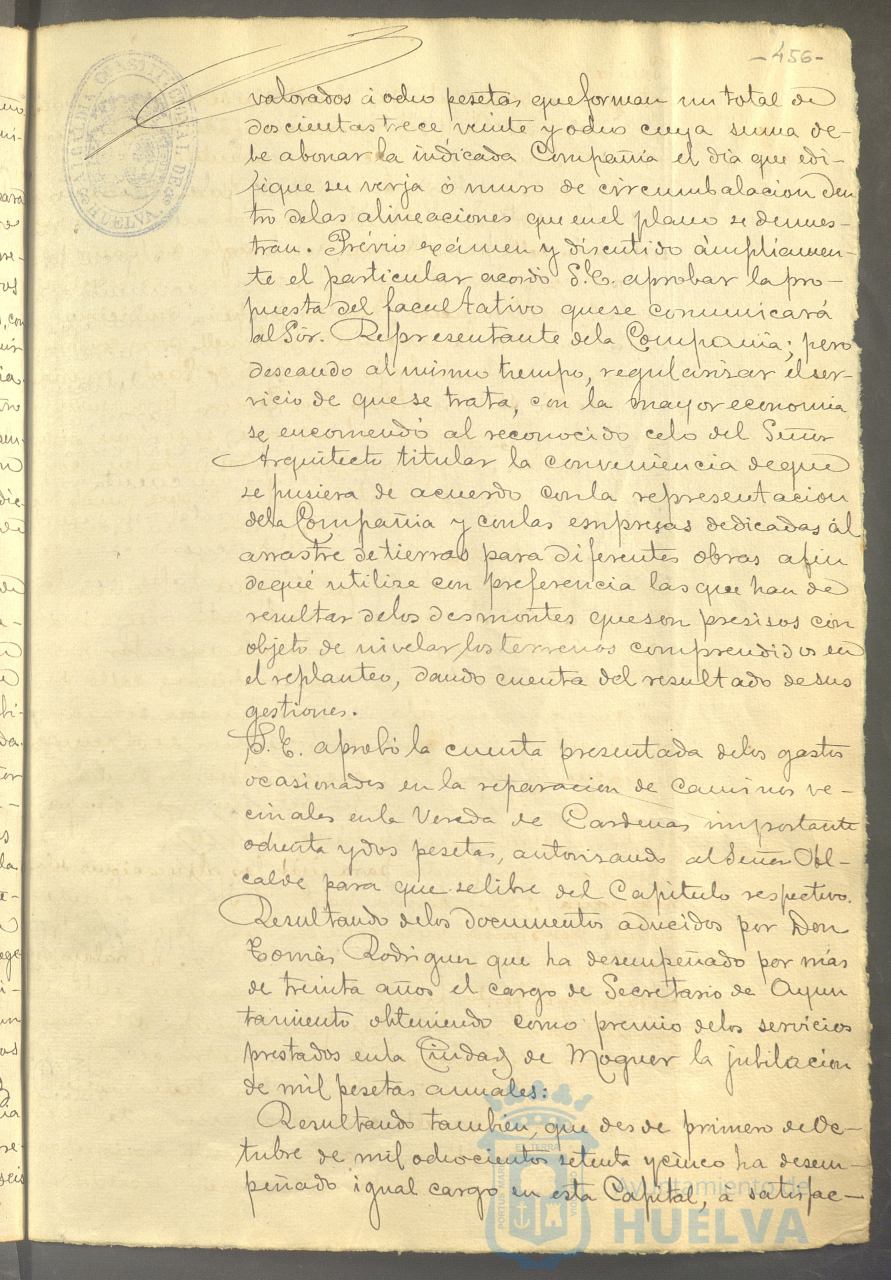 -456-
ALCALDIA CONSTITUCIONAL DE
HUELVA
valorados á ocho pesetas que forman un total de
doscientas trece veinte y ocho cuya suma de-
be abonar la indicada Compañia el dia que edi-
fique su verja ó muro de circumbalacion den
tro de las alineaciones que en el plano se demues-
tran. Prévio exámen y discutido ámpliamen-
te el particular acordó S.E. aprobar la pro-
puesta del facultativo que se comunicará
al Sór. Representante de la Compañia; pero
deseando al mismo tiempo, regularizar el ser-
vicio de que se trata, con la mayor economia
se encomendó al reconocido celo del Señor
Arquitecto titular la conveniencia de que
se pusiera de acuerdo con la representacion
de la Compañia y con las empresas dedicadas ál
arrastre de tierras para diferentes obras a fin
de qué utilize con preferencia las que han de
resultar de los desmontes que son presisos con
objeto de nivelar los terrenos comprendidos en
el replanteo, dando cuenta del resultado de sus
gestiones.
S. E. aprobó la cuenta presentada de los gastos
ocasionados en la reparacion de Caminos ve-
cinales en la Vereda de Cardenas importante
ochenta y dos pesetas, autorizando al Señor Al-
calde para que se libre del Capitulo respectivo.
Resultando de los documentos aducidos por Don
Tomás Rodriguez que ha desempeñado por más
de treinta años el cargo de Secretario de Ayun
tamiento obteniendo como premio de los servicios
prestados en la Ciudad de Moguer la jubilacion
de mil pesetas anuales:
Resultando tambien, que desde primero de Oc-
tubre de mil ochocientos setenta y cinco ha desem-
peñado igual cargo en esta Capital, á satisfac-
Ayuntamiento de
HUELVA